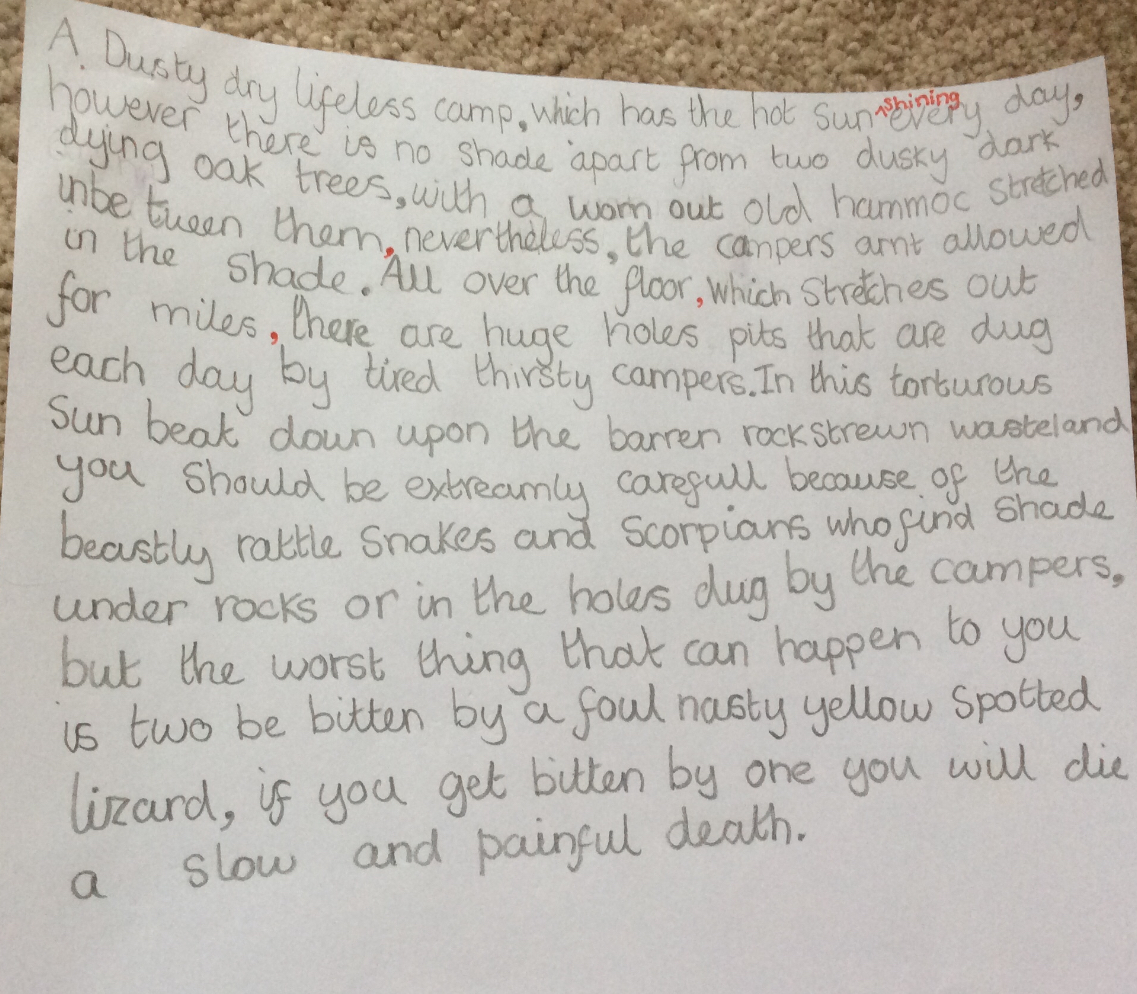 A Dusty dry lifeless camp, which has the hot sun ^shining every day,
however there is no shade apart from two dusky dark
dying oak trees, with a worn out old hammoc stretched
inbetween them, nevertheless, the campers arnt allowed
in the shade. All over the floor, which stretches out
for miles, there are huge holes pits that are dug
each day by tired thirsty campers. In this torturous
sun beat down upon the barren rockstrewn wasteland
you should be extreamly carefull because of the
beastly rattle snakes and scorpians who find shade
under rocks or in the holes dug by the campers,
but the worst thing that can happen to you
is two be bitten by a foul nasty yellow spotted
lizard, if you get bitten by one you will die
a slow and painful death.